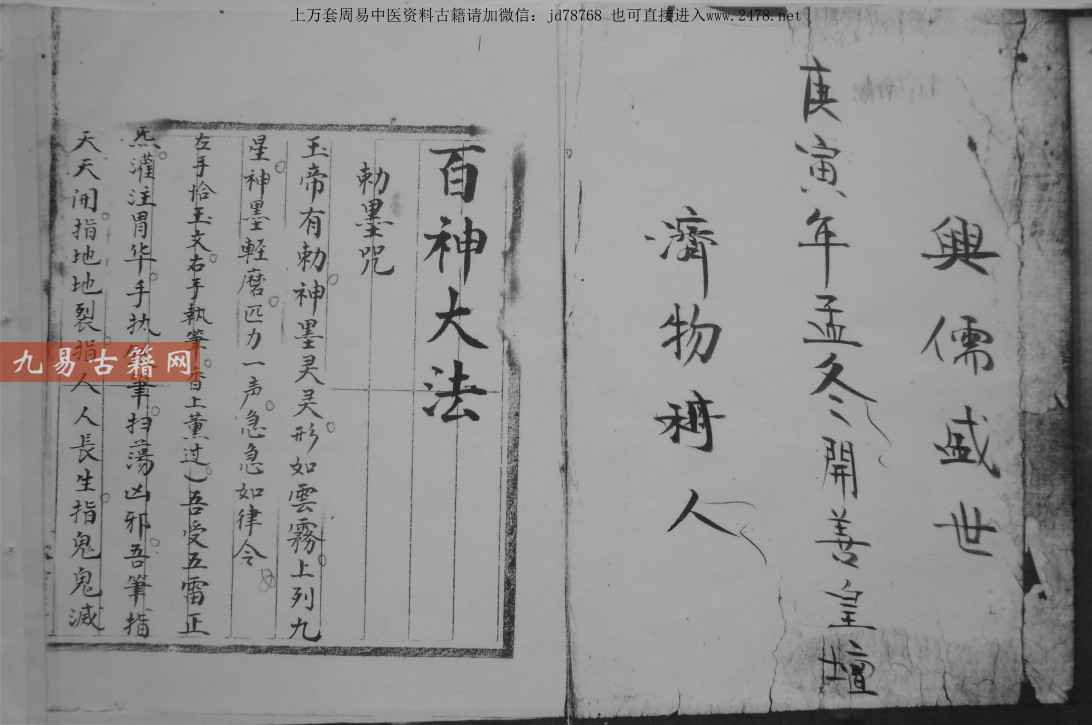 上万套周易中医资料古籍请加微信：jd78768 也可直接进入www.2478.net
興儒盛世
庚寅年孟冬開善皇壇
濟物 人
百神大法
勅墨咒
玉帝有勅神墨灵灵形如雲霧上列九
星神墨輕磨匹力一声急急如律令
左手恰玉文右手執筆 香上薰过）吾受五雷正
炁灌注胃华手执 筆扫蕩凶邪吾筆指
天天開指地地裂指人人長生指鬼鬼滅
九易古籍网